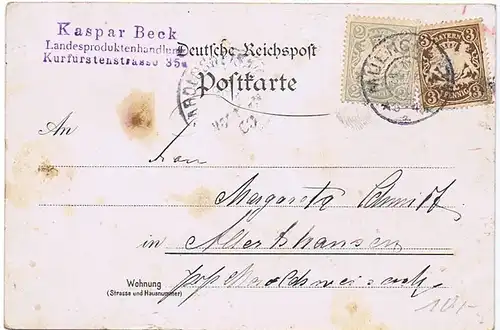 Kaspar Beck
Landesproduktenhandlung
Kurfürstenstrasse 35a
Deutsche Reichspost
Postkarte
2
BAYERN
3 3
MUENCHEN
An
Frau
Margareta Schmidt
in Allertshausen
Wohnung
(Strasse und Hausnummer)